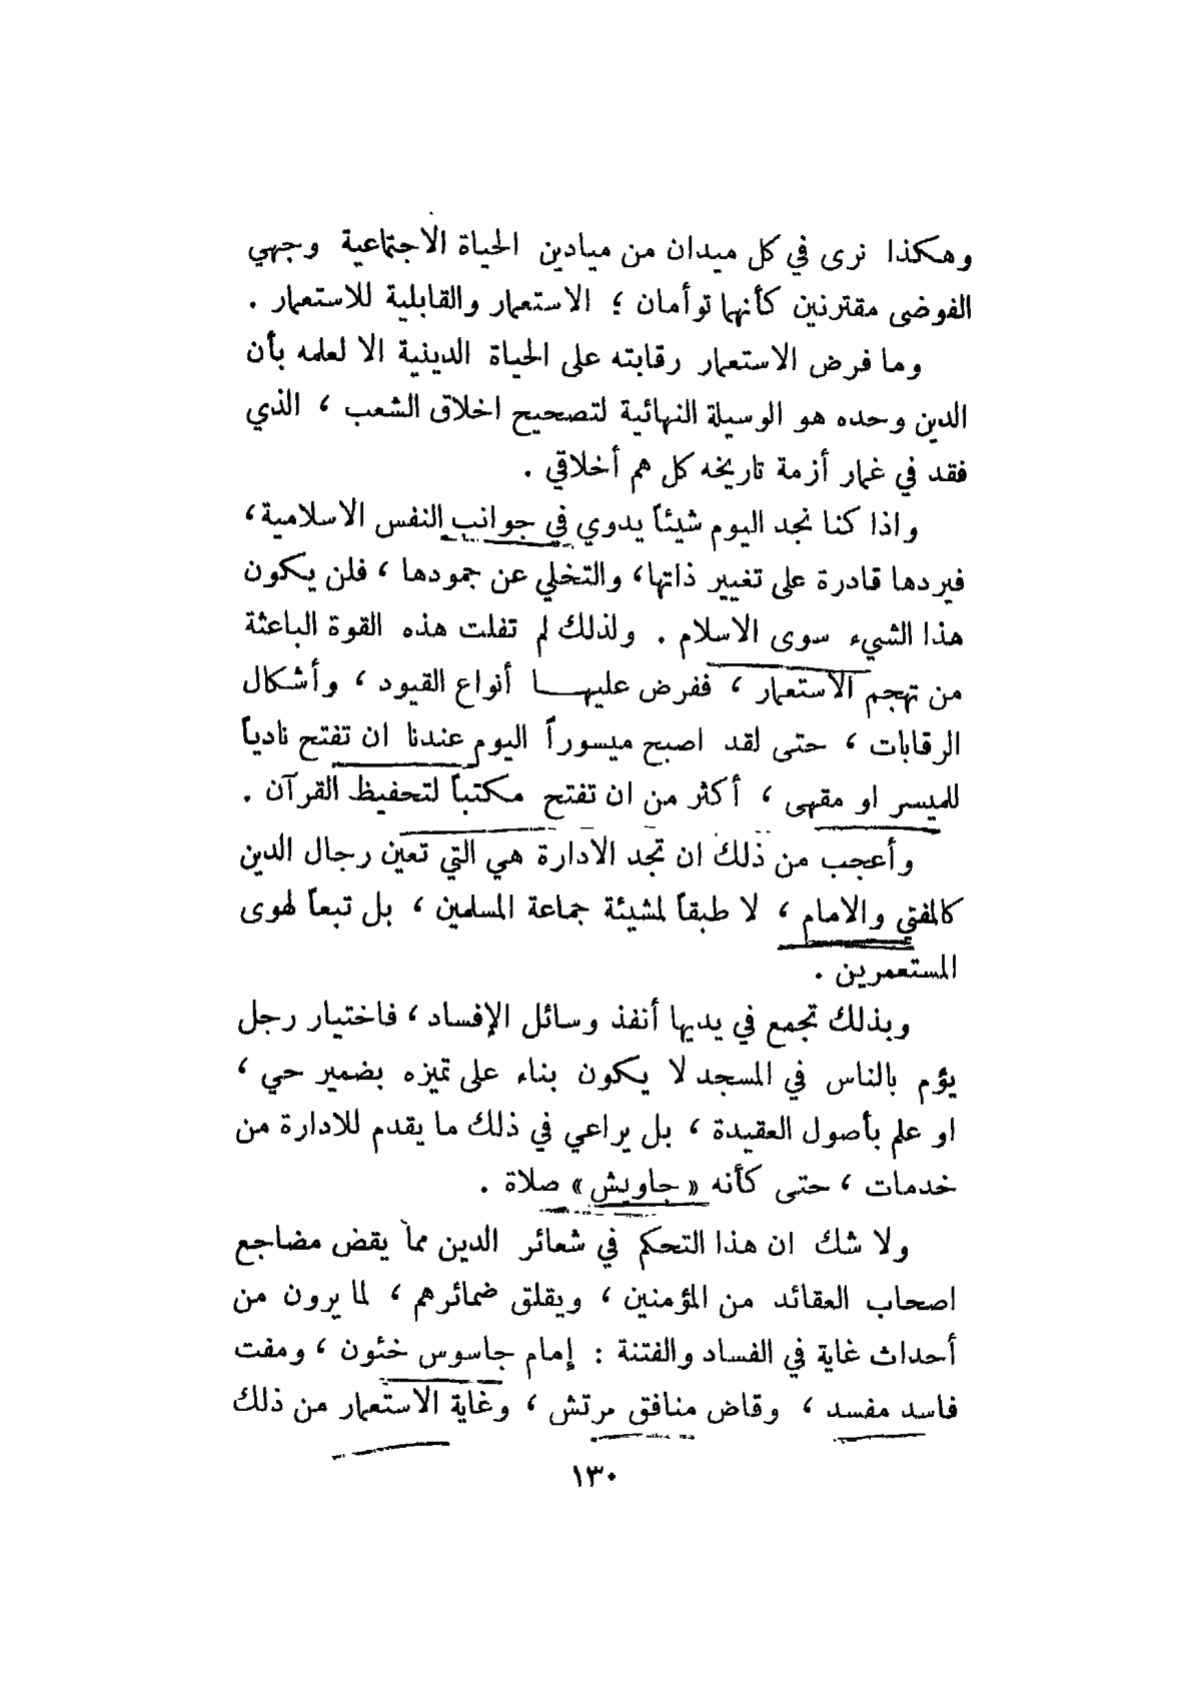 وهكذا نرى في كل ميدان من ميادين الحياة الاجتماعية وجهي
الفوضى مقترنين كأنهما توأمان ؛ الاستعمار والقابلية للاستعمار .
وما فرض الاستعمار رقابته على الحياة الدينية الا لعلمه بأن
الدين وحده هو الوسيلة النهائية لتصحيح اخلاق الشعب ، الذي
فقد في غمار أزمة تاريخه كل هم أخلاقي .
واذا كنا نجد اليوم شيئاً يدوي في جوانب النفس الاسلامية ،
فيردها قادرة على تغيير ذاتها ، والتخلي عن جمودها ، فلن يكون
هذا الشيء سوى الاسلام . ولذلك لم تفلت هذه القوة الباعثة
من تهجم الاستعمار ، ففرض عليهـــا أنواع القيود ، وأشكال
الرقابات ، حتى لقد اصبح ميسوراً اليوم عندنا ان تفتح نادياً
للميسر او مقهى ، أكثر من ان تفتح مكتباً لتحفيظ القرآن .
وأعجب من ذلك ان تجد الادارة هي التي تعين رجال الدين
كالمفتي والامام ، لا طبقاً لمشيئة جماعة المسلمين ، بل تبعاً لهوى
المستعمرين .
وبذلك تجمع في يديها أنفذ وسائل الإفساد ، فاختيار رجل
يؤم بالناس في المسجد لا يكون بناء على تميزه بضمير حي ،
او علم بأصول العقيدة ، بل يراعي في ذلك ما يقدم للادارة من
خدمات ، حتى كأنه « جاويش » صلاة .
ولا شك ان هذا التحكم في شعائر الدين مما يقض مضاجع
اصحاب العقائد من المؤمنين ، ويقلق ضمائرهم ، لما يرون من
أحداث غاية في الفساد والفتنة : إمام جاسوس خئون ، ومفت
فاسد مفسد ، وقاض منافق مرتش ، وغاية الاستعمار من ذلك
١٣٠